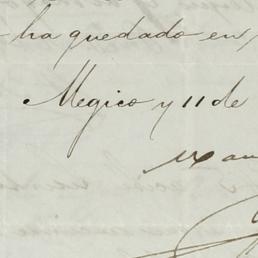 ha quedado en
Megico y 11 de